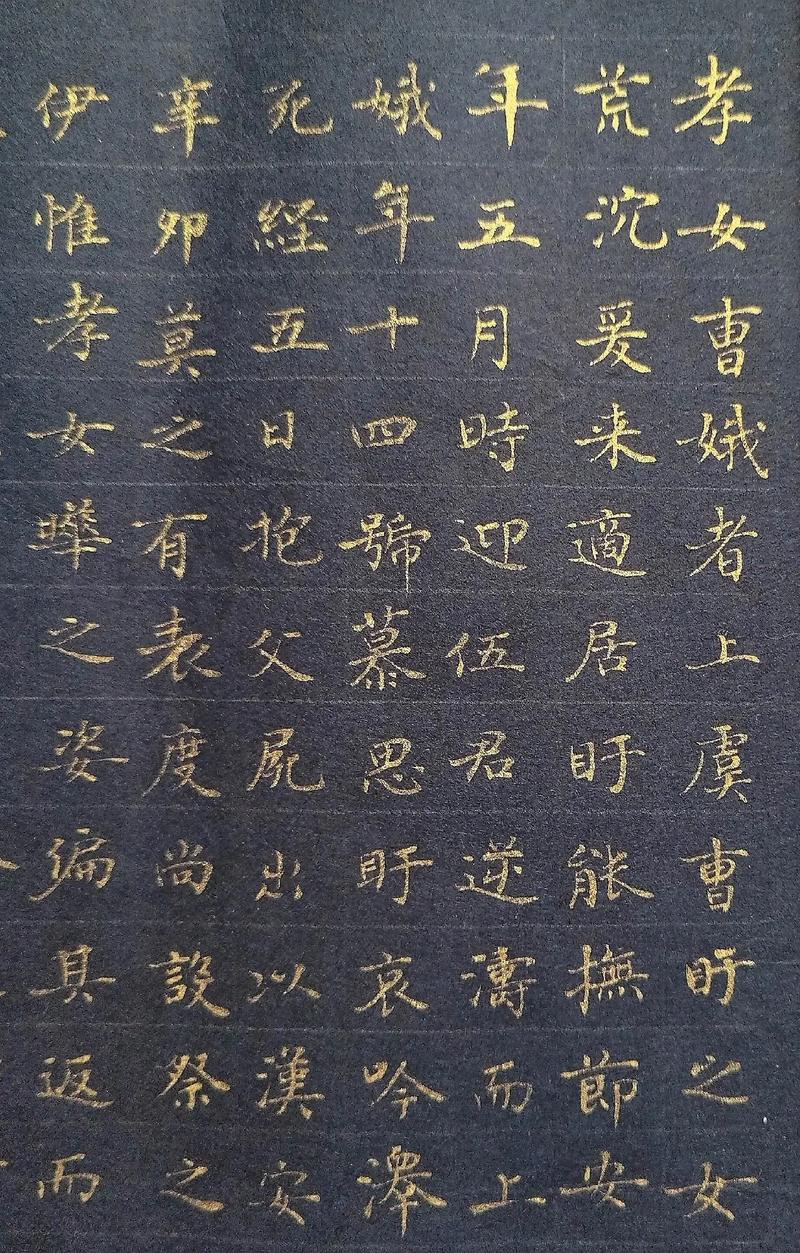 孝女曹娥者上虞曹盱之女
荒沉爰来適居盱能撫節安
年五月時迎伍君逆濤而上
娥年十四號慕思盱哀吟澤
死経五日抱父屍出以漢安
辛卯莫之有表度尚設祭之
伊惟孝女曄之姿偏其返而